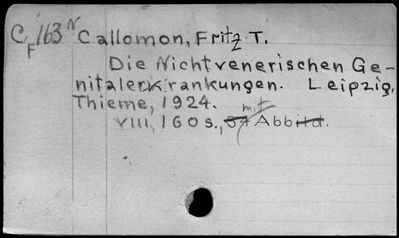 C_F 163 N Callomon, Fritz T.
Die Nichtvenerischen Ge-
nitalerkrankungen. Leipzig,
Thieme, 1924.
mit
VIII, 160 s., 54 Abbild.